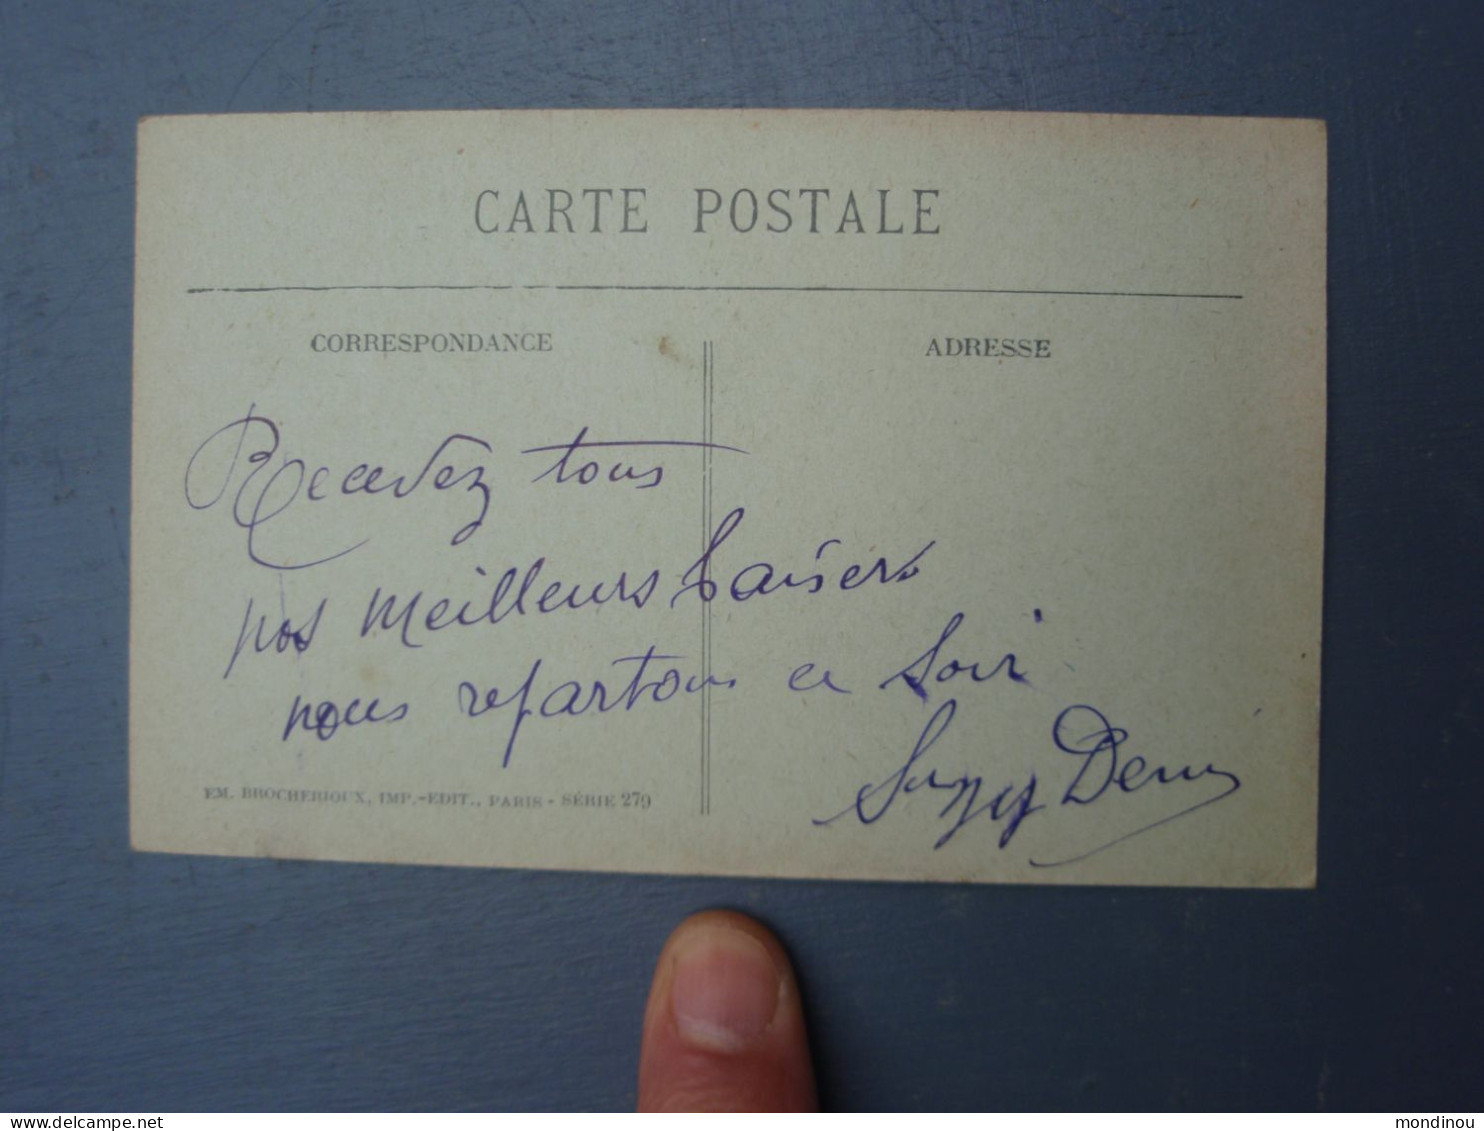 CARTE POSTALE
CORRESPONDANCE
ADRESSE
Recevez tous
nos meilleurs baisers
nous repartons ce soir
Suzy Denis
EM. BROCHERIOUX, IMP.-EDIT., PARIS - SÉRIE 279
mondinou